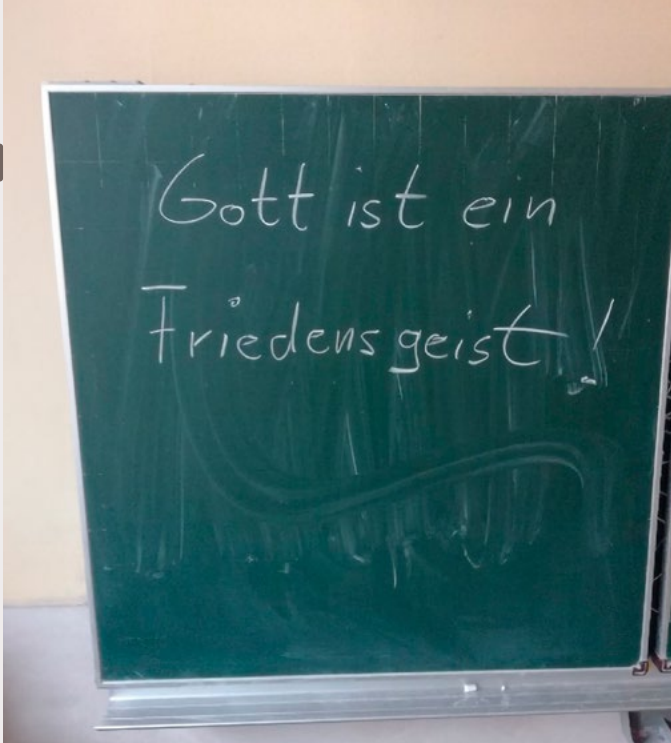 Gott ist ein
Friedensgeist!